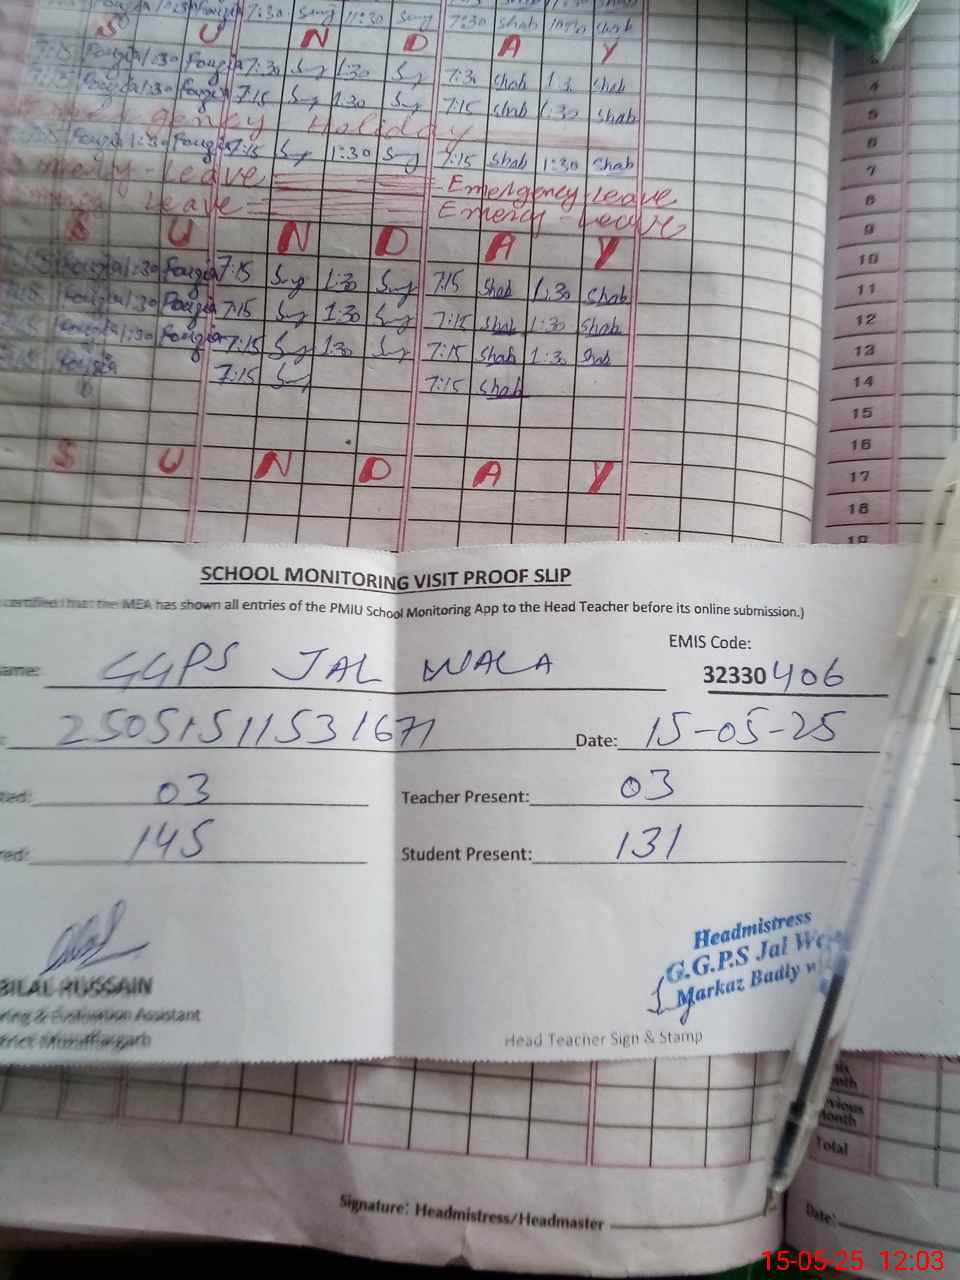 7:30 Sung 11:30 Sung 7:30 Shab Shab
S U N D A Y
7:15 Fouzia 1:30 Fouzia 7:30 Sung 1:30 Sung 7:30 Shab 1:30 Shab
7:15 Fouzia 1:30 Fouzia 7:15 Sung 1:30 Sung 7:15 Shab 1:30 Shab
gency Holiday
7:15 Fouzia 1:30 Fouzia 7:15 Sung 1:30 Sung 7:15 Shab 1:30 Shab
Leave Emergency Leave
Leave Emercy - Leave
S U N D A Y
Fouzia 1:30 Fouzia 7:15 Sung 1:30 Sung 7:15 Shab 1:30 Shab
Fouzia 1:30 Fouzia 7:15 Sung 1:30 Sung 7:15 Shab 1:30 Shab
Fouzia 1:30 Fouzia 7:15 Sung 1:30 Sung 7:15 Shab 1:30 Shab
Fouzia 7:15 Sung 7:15 Shab
S U N D A Y
4
5
6
7
8
9
10
11
12
13
14
15
16
17
18
19
SCHOOL MONITORING VISIT PROOF SLIP
certified that the MEA has shown all entries of the PMIU School Monitoring App to the Head Teacher before its online submission.)
EMIS Code:
ame: GGPS JAL WALA 32330406
25051511531671 Date: 15-05-25
ted: 03 Teacher Present: 03
red: 145 Student Present: 131
Headmistress
G.G.P.S Jal W
Markaz Badly w
BILAL HUSSAIN
ring & Evaluation Assistant
trict Muzaffargarh
Head Teacher Sign & Stamp
nth
evious
month
Total
Signature: Headmistress/Headmaster
Date:
15-05-25 12:03